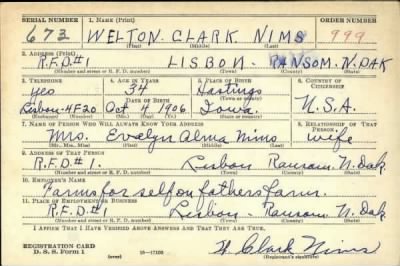 SERIAL NUMBER 1. NAME (Print) ORDER NUMBER
673 WELTON CLARK NIMS 999
(First) (Middle) (Last)
2. ADDRESS (Print)
R.F.D.#1 LISBON RANSOM N.DAK
(Number and street or R. F. D. number) (Town) (County) (State)
3. TELEPHONE 4. AGE IN YEARS 5. PLACE OF BIRTH 6. COUNTRY OF CITIZENSHIP
yes 34 Hastings
DATE OF BIRTH (Town or county)
Lisbon-4F20 Oct 4 1906 Iowa U.S.A.
(Exchange) (Number) (Mo.) (Day) (Yr.) (State or country)
7. NAME OF PERSON WHO WILL ALWAYS KNOW YOUR ADDRESS 8. RELATIONSHIP OF THAT PERSON
Mrs. Evalyn Alma Nims wife
(Mr., Mrs., Miss) (First) (Middle) (Last)
9. ADDRESS OF THAT PERSON
R.F.D.#1. Lisbon Ransom N.Dak.
(Number and street or R. F. D. number) (Town) (County) (State)
10. EMPLOYER'S NAME
Farms for self on fathers farm.
11. PLACE OF EMPLOYMENT OR BUSINESS
R.F.D.#1 Lisbon- Ransom N.Dak.
(Number and street or R. F. D. number) (Town) (County) (State)
I AFFIRM THAT I HAVE VERIFIED ABOVE ANSWERS AND THAT THEY ARE TRUE.
REGISTRATION CARD
D. S. S. Form 1 (over) W. Clark Nims
(Registrant's signature)